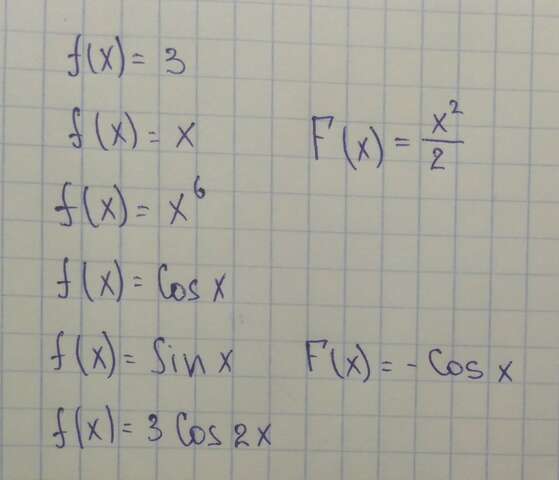 f(x) = 3
f(x) = x F(x) = x²/2
f(x) = x⁶
f(x) = Cos x
f(x) = Sin x F(x) = - Cos x
f(x) = 3 Cos 2x